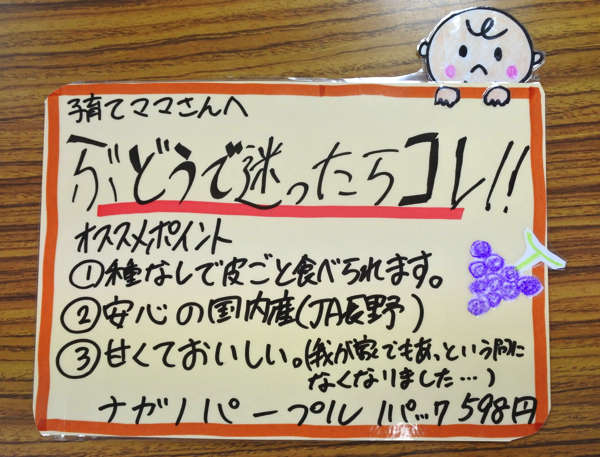 子育てママさんへ
ぶどうで迷ったらコレ!!
オススメポイント
①種なしで皮ごと食べられます。
②安心の国内産(JA長野)
③甘くておいしい。(我が家でもあっという間に
なくなりました…)
ナガノパープル 1パック 598円